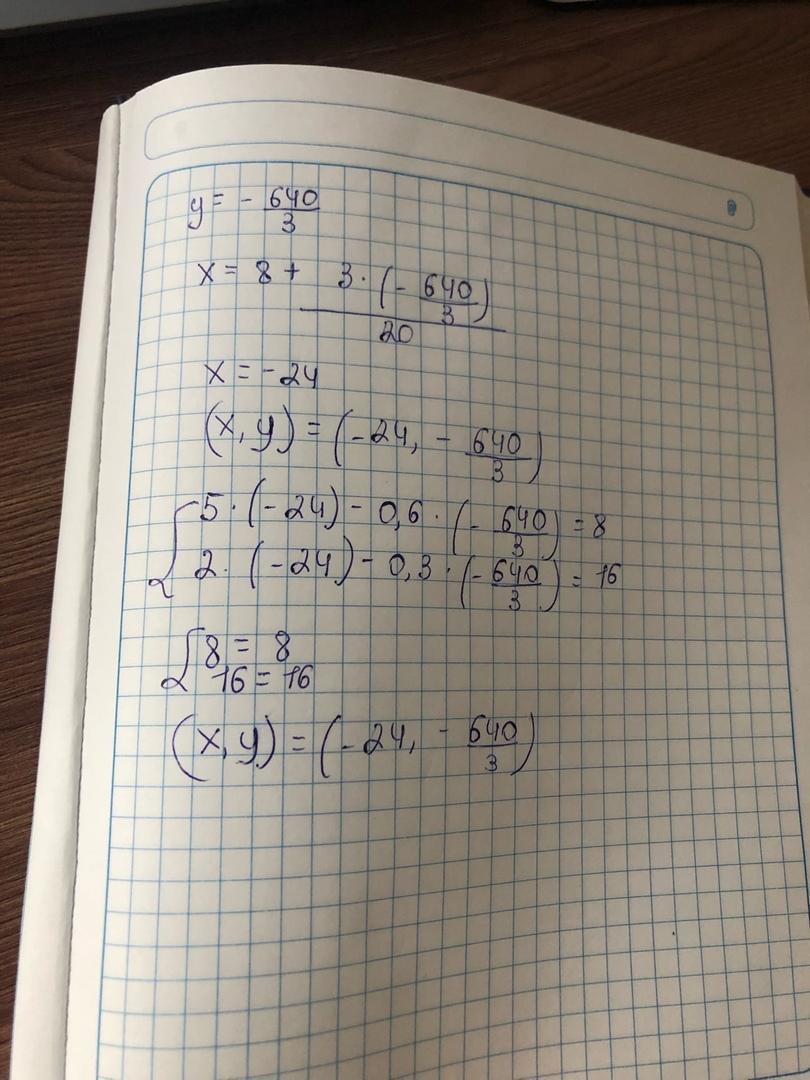 y = - 640/3
x = 8 + 3·(- 640/3)/20
x = -24
(x, y) = (-24, - 640/3)
{ 5·(-24) - 0,6·(- 640/3) = 8
2·(-24) - 0,3·(- 640/3) = 16
{ 8 = 8
16 = 16
(x, y) = (-24, - 640/3)